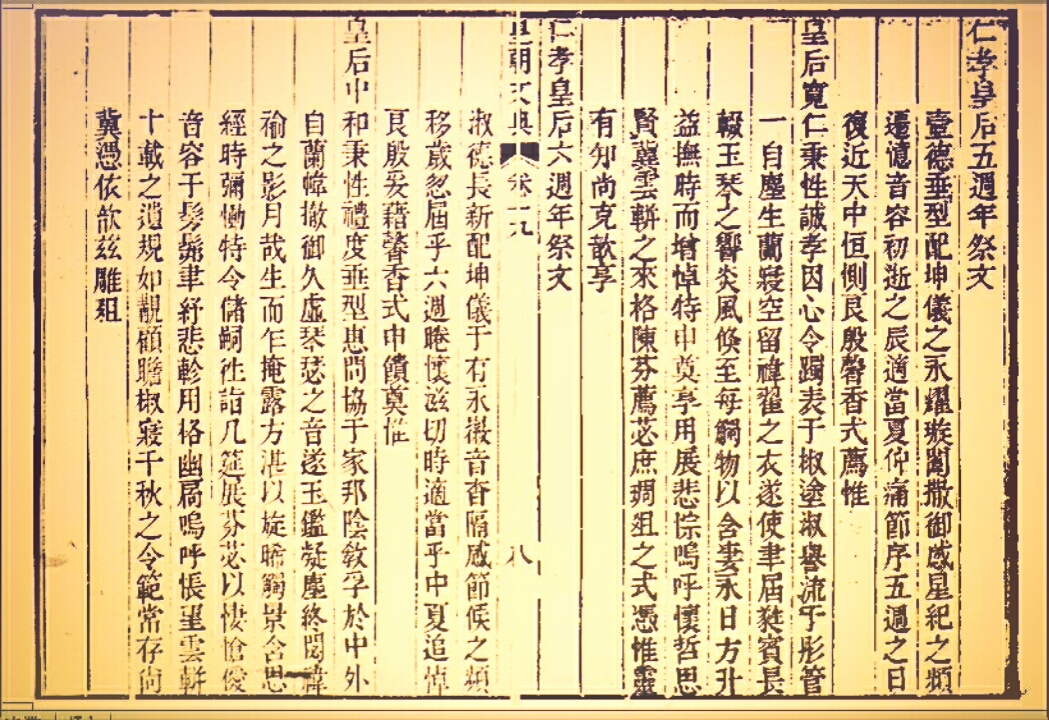 仁孝皇后五週年祭文
壼德垂型配坤儀之永耀璇闈撤御感星紀之頻
遷憶音容初逝之辰適當夏仲痛節序五週之日
復近天中恒惻艮殷馨香式薦惟
皇后寬仁秉性誠孝因心令躅表于椒塗淑譽流于彤管
一自塵生蘭寢空留褘翟之衣遂使聿屆蕤賓長
輟玉琴之響炎風倏至每觸物以含悽永日方升
益撫時而增悼特申奠享用展悲悰嗚呼懷哲思
賢冀雲輧之來格陳芬薦苾庶琱俎之式憑惟靈
有知尚克歆享
仁孝皇后六週年祭文
皇朝文典 卷一九 八
淑德長新配坤儀于有永徽音杳隔感節候之頻
移歲忽屆乎六週睠懷茲切時適當乎中夏追悼
艮殷爰藉馨香式申饋奠惟
皇后中和秉性禮度垂型惠問協于家邦陰敎孚於中外
自蘭幃撤御久虛琴瑟之音遂玉鑑凝塵終閟褘
褕之影月哉生而乍掩露方湛以旋晞觸景含思
經時彌慟特令儲嗣徃詣几筵展芬苾以悽愴儼
音容于髣髴聿紓悲軫用格幽扃嗚呼悵望雲輧
十載之遺規如覩顧瞻椒寢千秋之令範常存尙
冀憑依歆茲雕俎